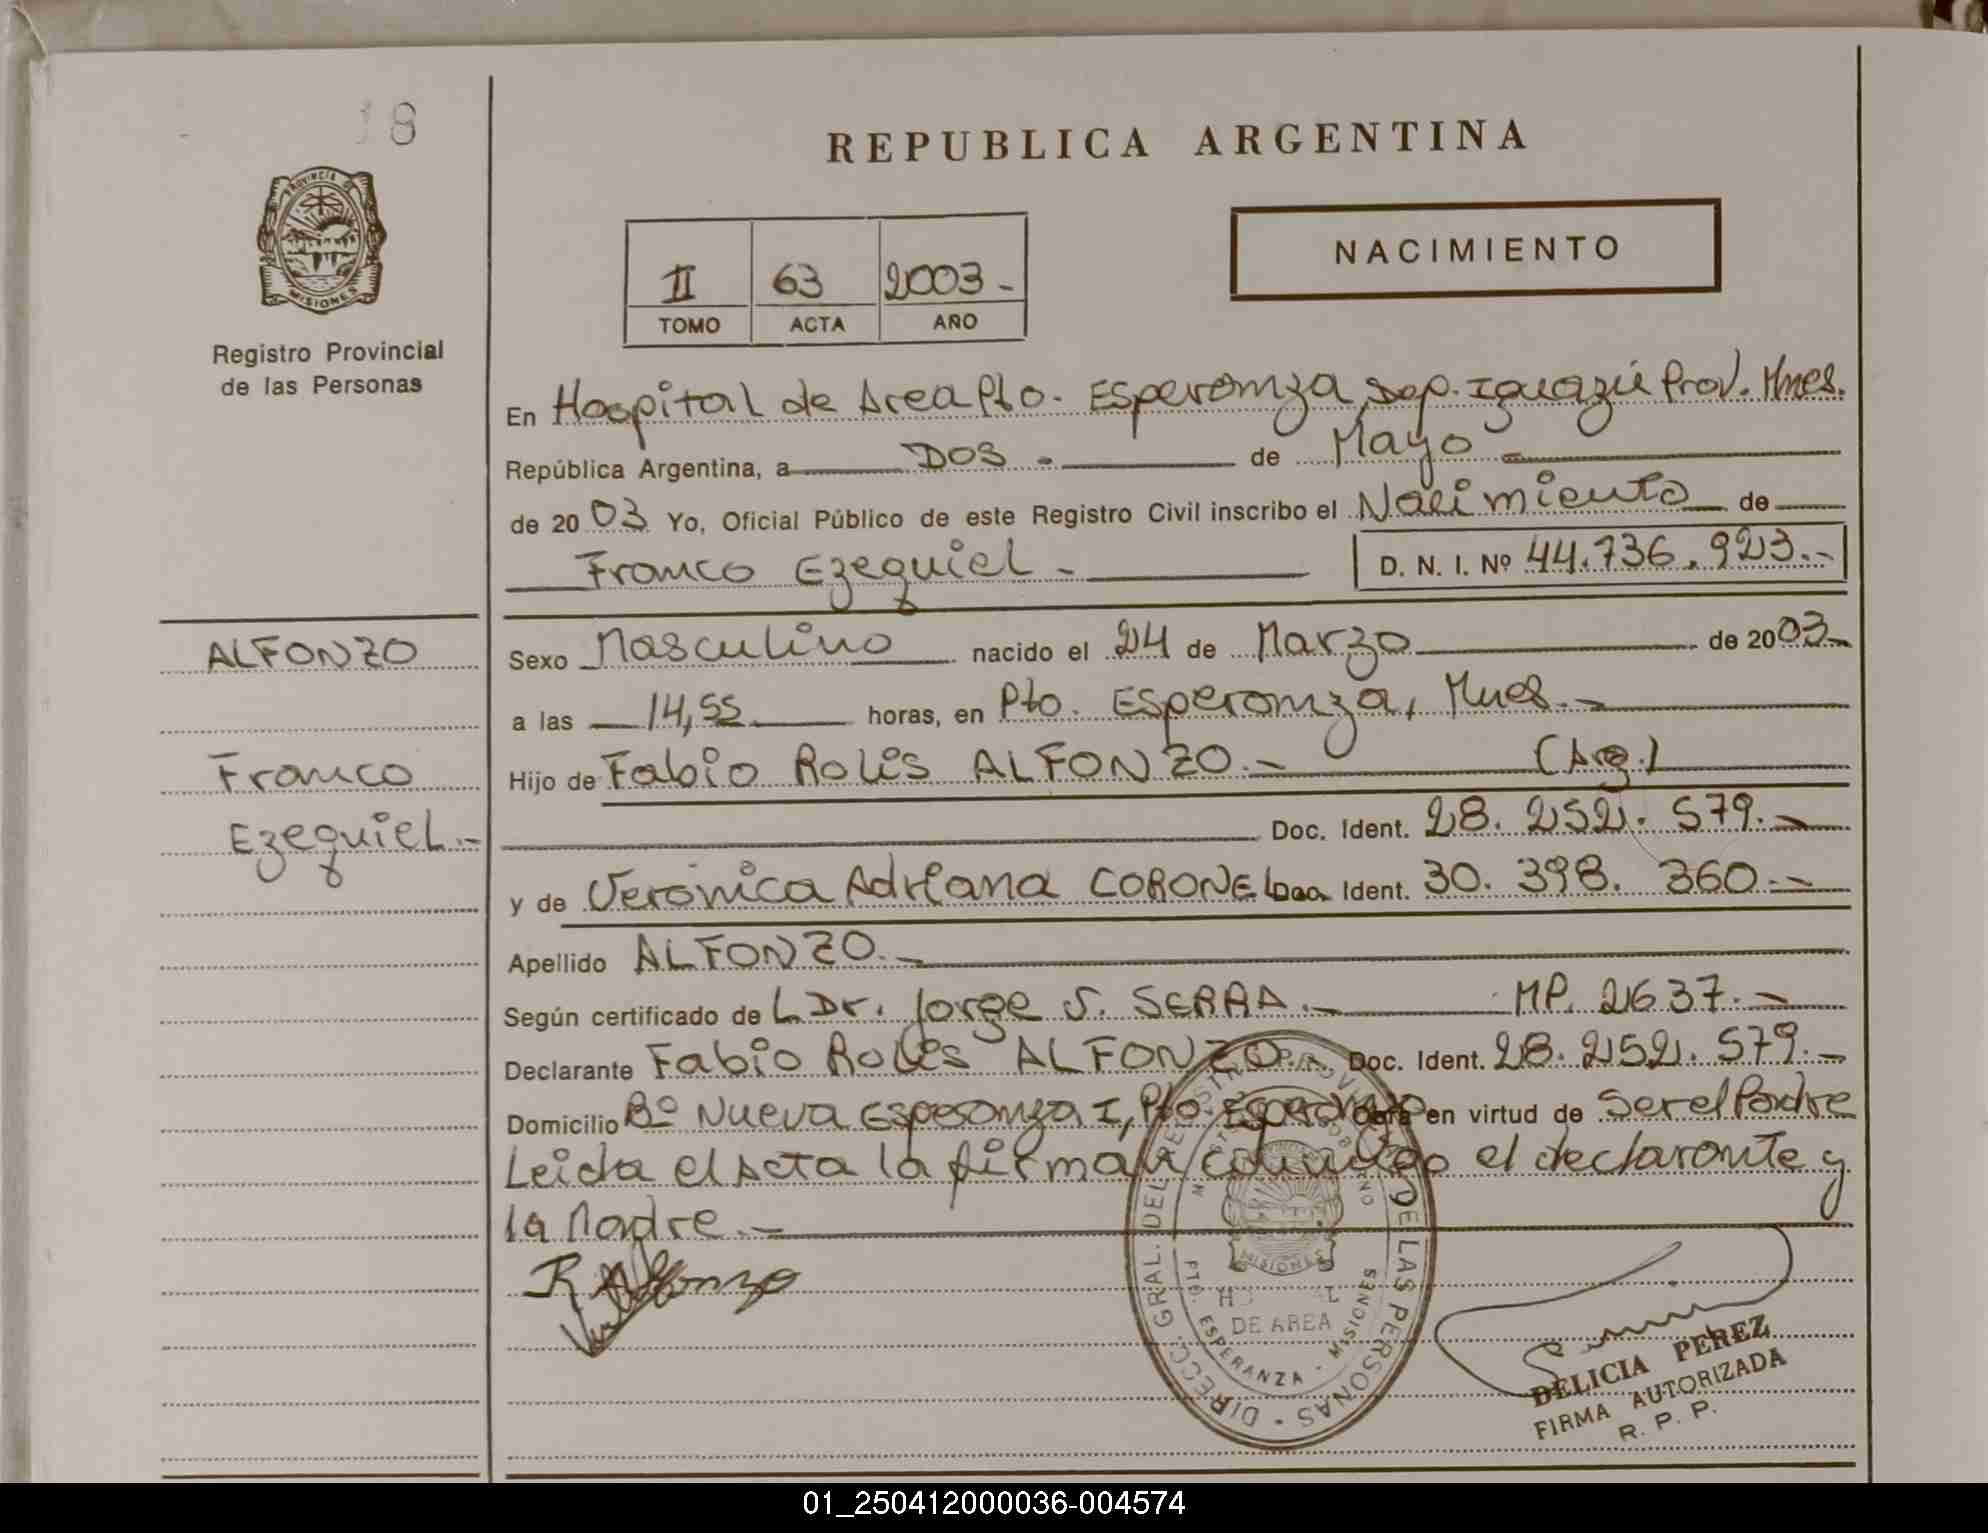 18
REPUBLICA ARGENTINA
PROVINCIA DE
MISIONES
Registro Provincial
de las Personas
NACIMIENTO
II 63 2003-
TOMO ACTA AÑO
En Hospital de Area Pto. Esperanza, Dep. Iguazú Prov. Mnes.
República Argentina, a DOS - de Mayo
de 20 03 Yo, Oficial Público de este Registro Civil inscribo el Nacimiento de
Franco Ezequiel - D. N. I. Nº 44.736.923.-
ALFONZO
Franco
Ezequiel.-
Sexo Masculino nacido el 24 de Marzo de 2003-
a las 14,55 horas, en Pto. Esperanza, Mnes.-
Hijo de Fabio Rolis ALFONZO.- (Arg.)
Doc. Ident. 28. 252. 579.-
y de Verónica Adriana CORONEL Doc. Ident. 30. 398. 360.-
Apellido ALFONZO.-
Según certificado de L. Dr. Jorge S. SERRA.- MP. 2637.-
Declarante Fabio Rolis ALFONZO Doc. Ident. 28. 252. 579.-
Domicilio Bº Nueva Esperanza I, Pto. Esperanza Obra en virtud de Ser el Padre
Leida el Acta la firman conmigo el declarante y
la Madre.-
R Alfonzo
DIRECC. GRAL. DEL REGISTRO PROVINCIAL DE LAS PERSONAS
MISIONES
HOSPITAL
DE AREA
PTO. ESPERANZA - MISIONES
DELICIA PEREZ
FIRMA AUTORIZADA
R. P. P.
01_250412000036-004574